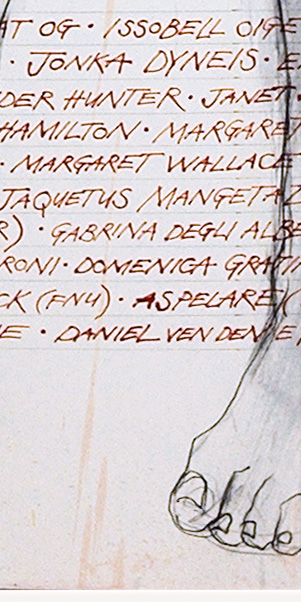 AT OG · ISSOBELL OIGE
· JONKA DYNEIS ·
DER HUNTER · JANET ·
HAMILTON · MARGARE
· MARGARET WALLACE
JAQUETUS MANGETA
R) · GABRINA DEGLI ALBE
RONI · DOMENIGA GRATI
CK (FNU) · ASPELARE (
E · DANIEL VEN DEN E